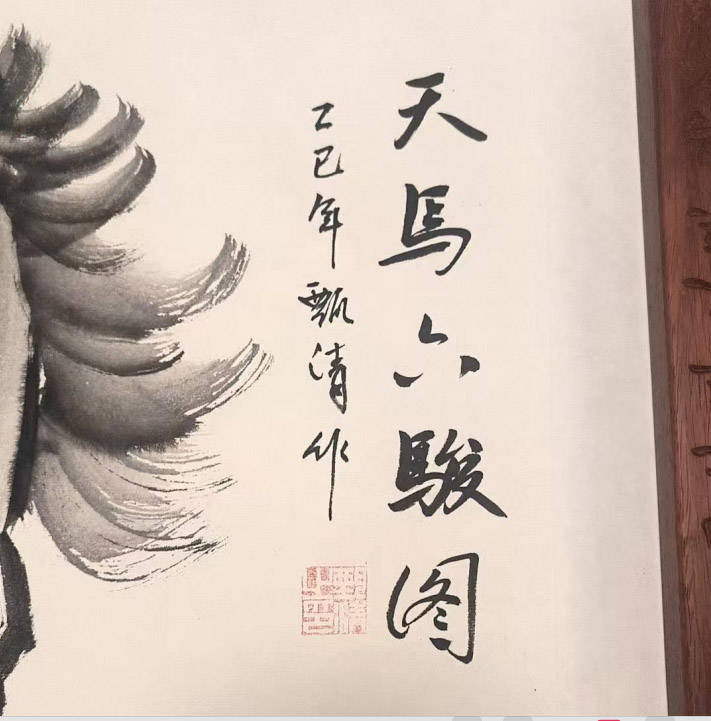 天馬六駿图
乙巳年甄清作